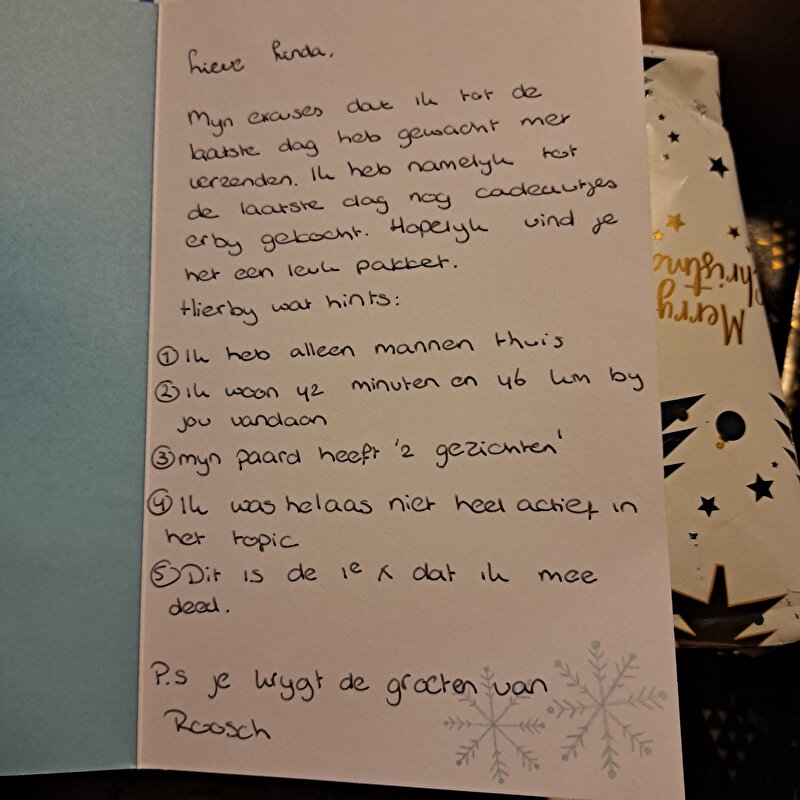 Lieve Linda,
Mijn excuses dat ik tot de
laatste dag heb gewacht met
verzenden. Ik heb namelijk tot
de laatste dag nog cadeautjes
erbij gekocht. Hopelijk vind je
het een leuk pakket.
Hierbij wat hints:
① Ik heb alleen mannen thuis
② ik woon 42 minuten en 46 km bij
jou vandaan
③ mijn paard heeft '2 gezichten'
④ Ik was helaas niet heel actief in
het topic
⑤ Dit is de 1e x dat ik mee
deed.
P.s je krijgt de groeten van
Roosch
Merry
Christmas